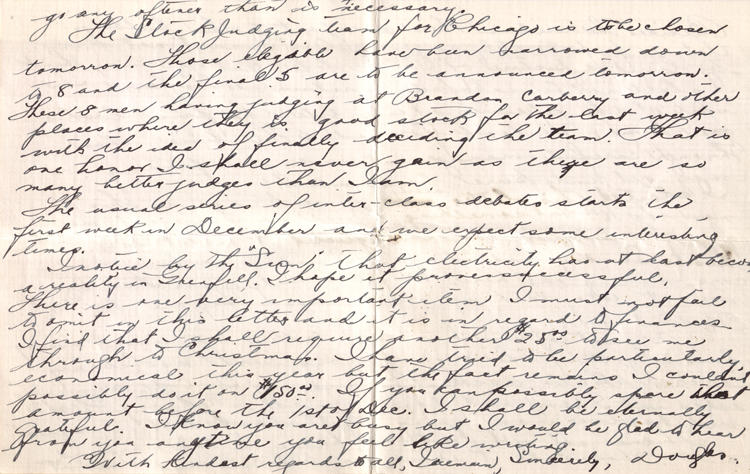 go any oftener than is necessary.
The Stock Judging team for Chicago is to be chosen
tomorrow. Those elegible have been narrowed down
to 8 and the final 5 are to be announced tomorrow.
These 8 men having judging at Brandon Carberry and other
places where they is good stock for the last week
with the idea of finally deciding the team. That is
one honor I shall never gain as there are so
many better judges than I am.
The usual series of inter-class debates starts the
first week in December and we expect some interesting
times.
I notice by the "Sun" that electricity has at last become
a reality in Grenfell. I hope it proves successful.
There is one very important item I must not fail
to omit in this letter and it is in regard to finances
I find that I shall require another $25.00 to see me
through to Christmas. I have tried to be particularly
economical this year but the fact remains I couldn't
possibly do it on $150.00. If you can possibly spare that
amount before the 1st of Dec. I shall be eternally
grateful. I know you are busy but I would be glad to hear
from you anytime you feel like writing.
With kindest regards to all, I remain, Sincerely, Douglas.